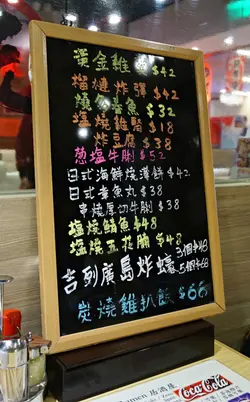 黃金雞 $42
榴槤炸彈 $42
燒多春魚 $32
塩燒雞腎 $18
炸豆腐 $38
葱塩牛脷 $52
日式海鮮燒薄餅 $42
日式章魚丸 $38
串燒厚切牛脷 $38
塩燒鯖魚 $48
塩燒五花腩 $48
吉列廣島炸蠔 3個$40
5個$68
炭燒雞扒飯 $66
居酒屋
Coca-Cola